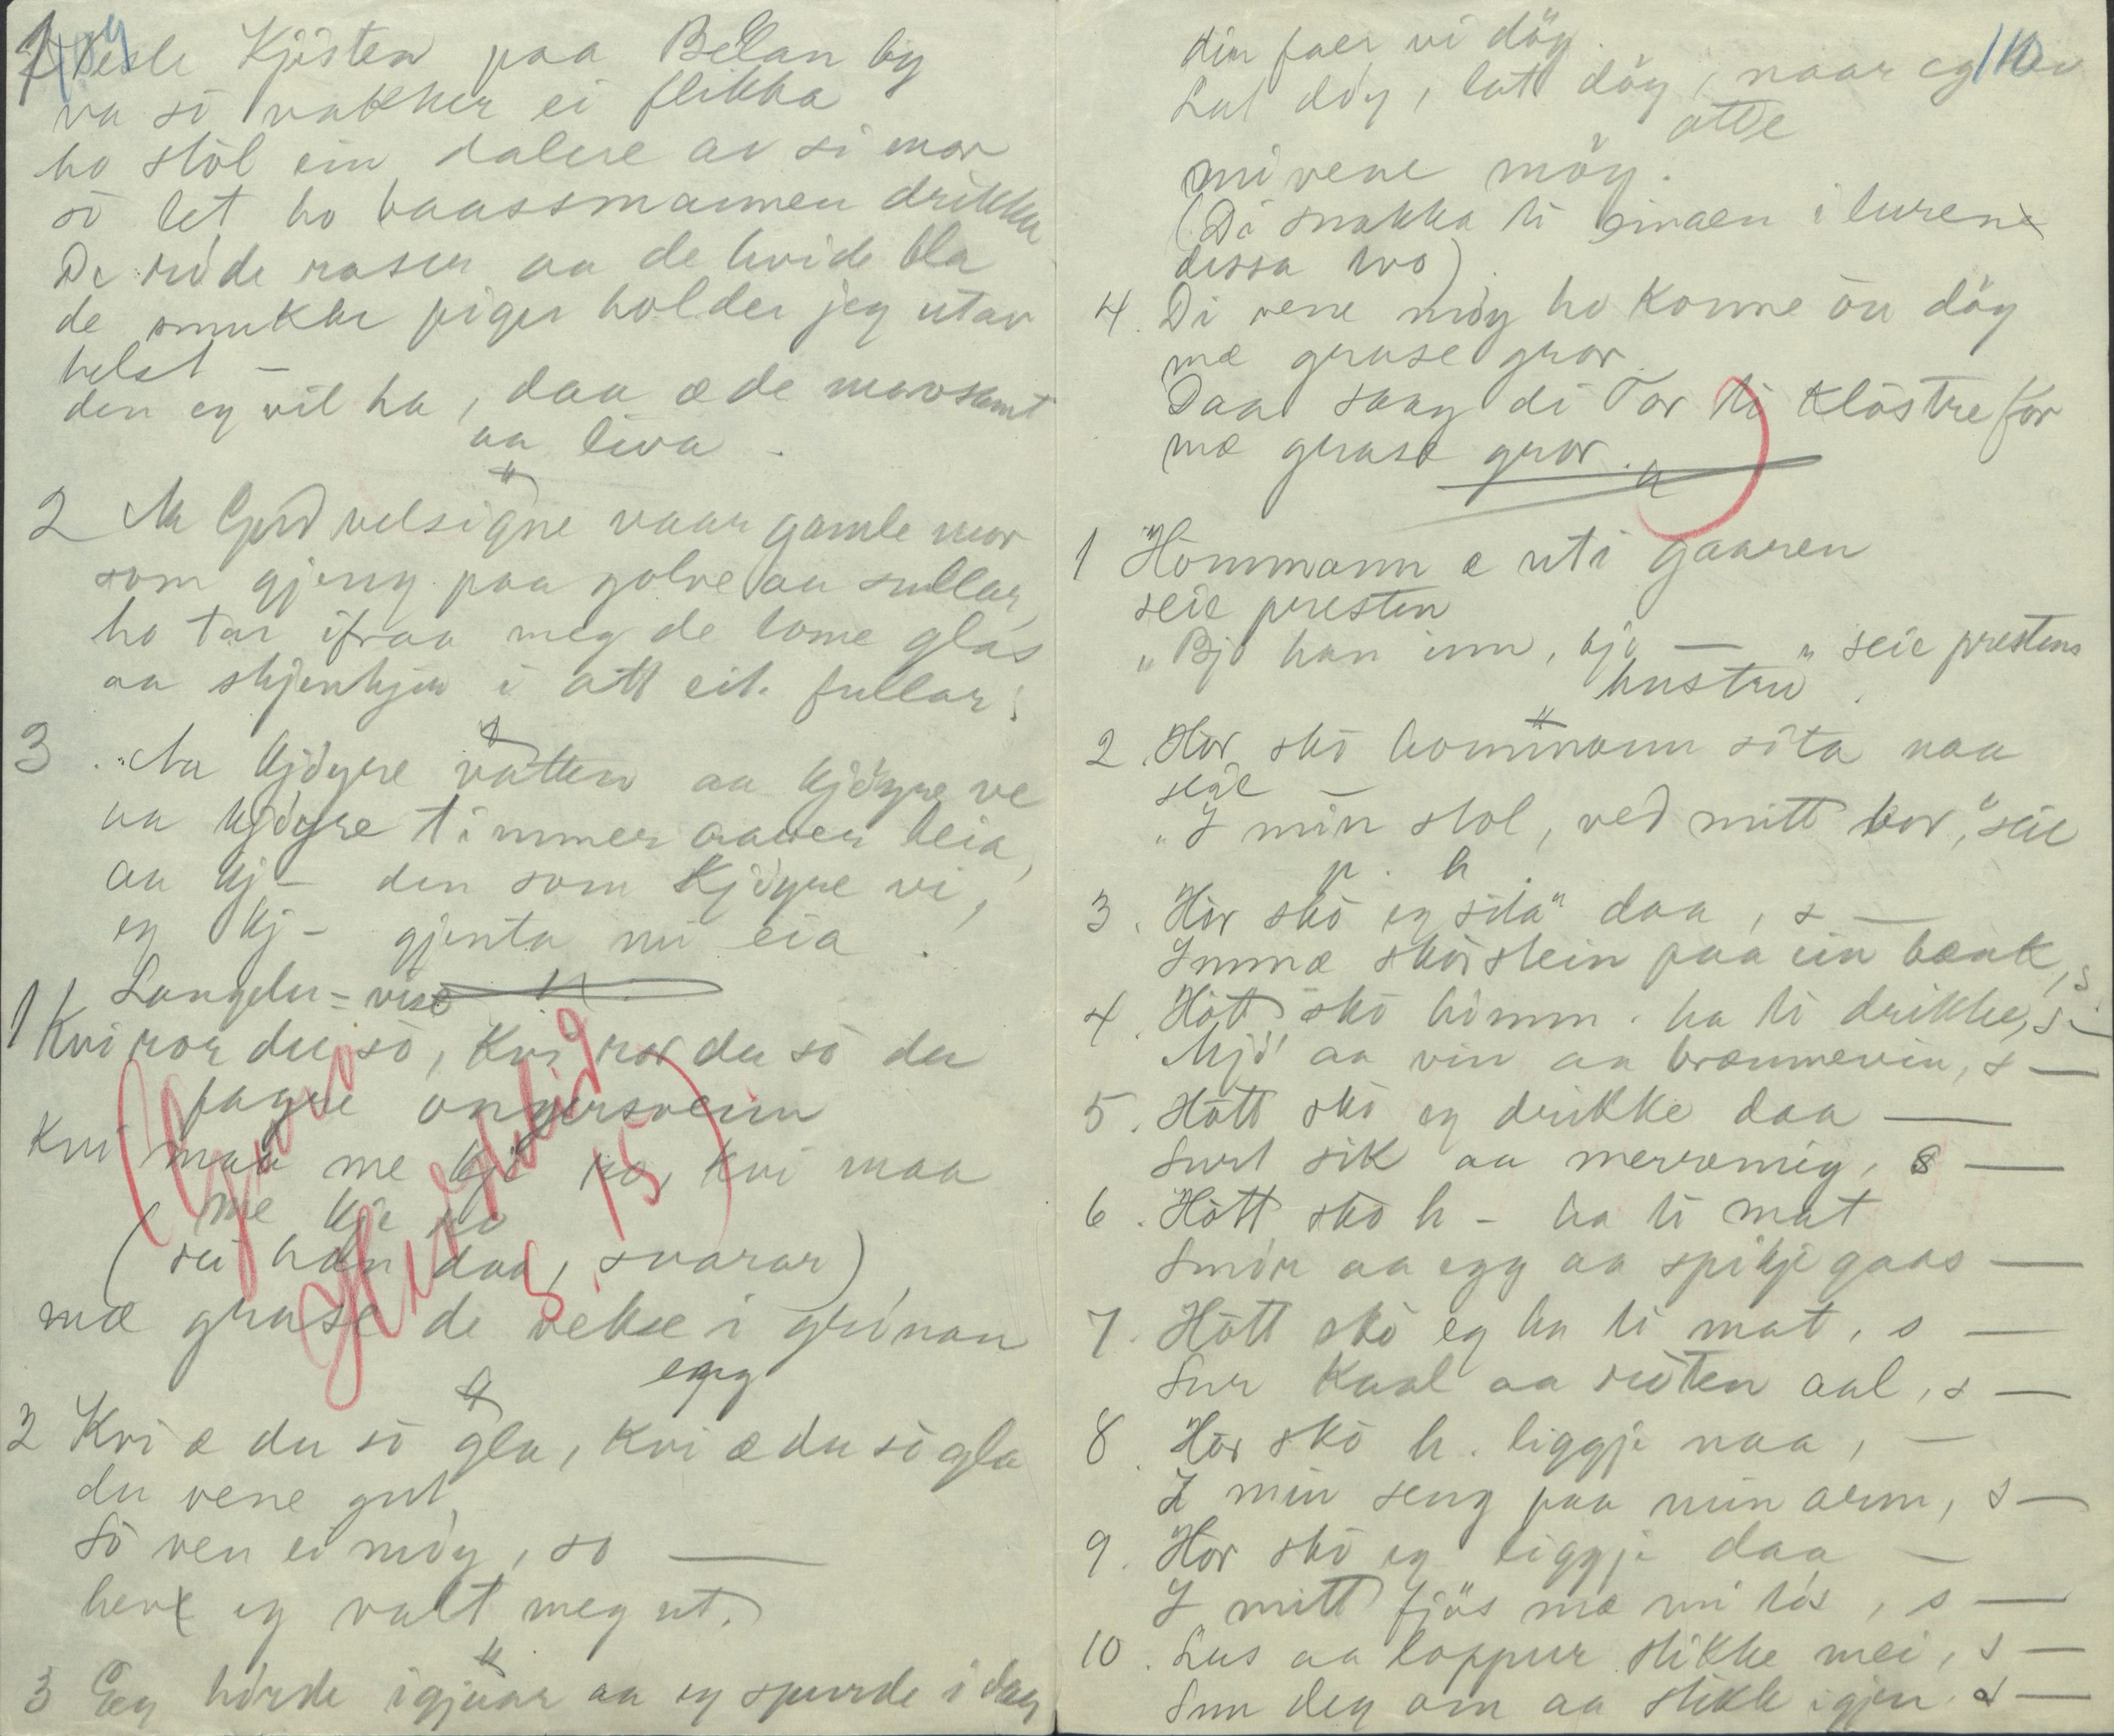 109
1 Vesle Kjisten paa Bellan by
va so vakker ei flikka
ho stòl ein dalere av si mor
so let ho baassmannen drikka
De røde roser aa de hvide bla
de smukke piger holder jeg utav
helst –
den eg vil ha, daa æ de morosamt
aa liva.
2 Aa Gud velsigne vaar gamle mor
som gjeng paa golve aa sullar,
ho tar ifraa meg de tome glas
aa skjenkjer i att eit fullar:
3 Aa kjøyre vatten aa kjøyre ve
aa kjøyre timmer aaver heia,
aa kj– den som kjøyre vi,
eg kj– gjenta mi eia.
Langelu-vise
1 Kvi ror du sò, kvi ror du sò du
fagre ongersvein
Kvi maa me kje ro, kvi maa
me kje ro
(sei han daa, svarar)
mæ grase de vekse i grónan
egg
2 Kvi æ du sò gla, kvi æ du sò gla
du vene gut
Sò ven ei möy, so —
heve eg valt meg ut.
3 Eg hörde igjaar aa eg spurde i dag
110
din faer vi döy.
Lat döy, latt döy, naar eg
atte
mi vene möy.
(Dá snakka ti einaen i lurene
dessa two)
4. Di vene möy ho konne òu döy
mæ grase gror.
Daa saag di Tor ti Klöstre for
mæ grase gror.
1 Hommann e uti gaaren
seie presten
"Bjò han inn, bjo — " seie prestens
hustru.
2. Hor skò hommann sita naa
seie —
"I min stol, ved mitt bor," seie
p. h.
3. Hor skò eg sita" daa, s —
Immæ skòrstein paa ein bænk, s
4. Hòtt skò homm. ha ti drikke, s —
Mjò' aa vin aa brænnevin, s —
5. Hòtt skò eg drikke daa —
Surt sik aa merremig, s —
6. Hòtt skò h – ha ti mat
Smör aa egg aa spikjegaas —
7. Hòtt skò eg ha ti mat, s —
Sur kaal aa ròten aal, s —
8. Hor skò h. liggje naa, —
I min seng paa min arm, s —
9. Hor skò eg liggje daa —
I mitt fjös mæ mi tòs, s —
10. Lus aa loppur stikke mei, s —
Snu deg om aa stikk igjen. s —